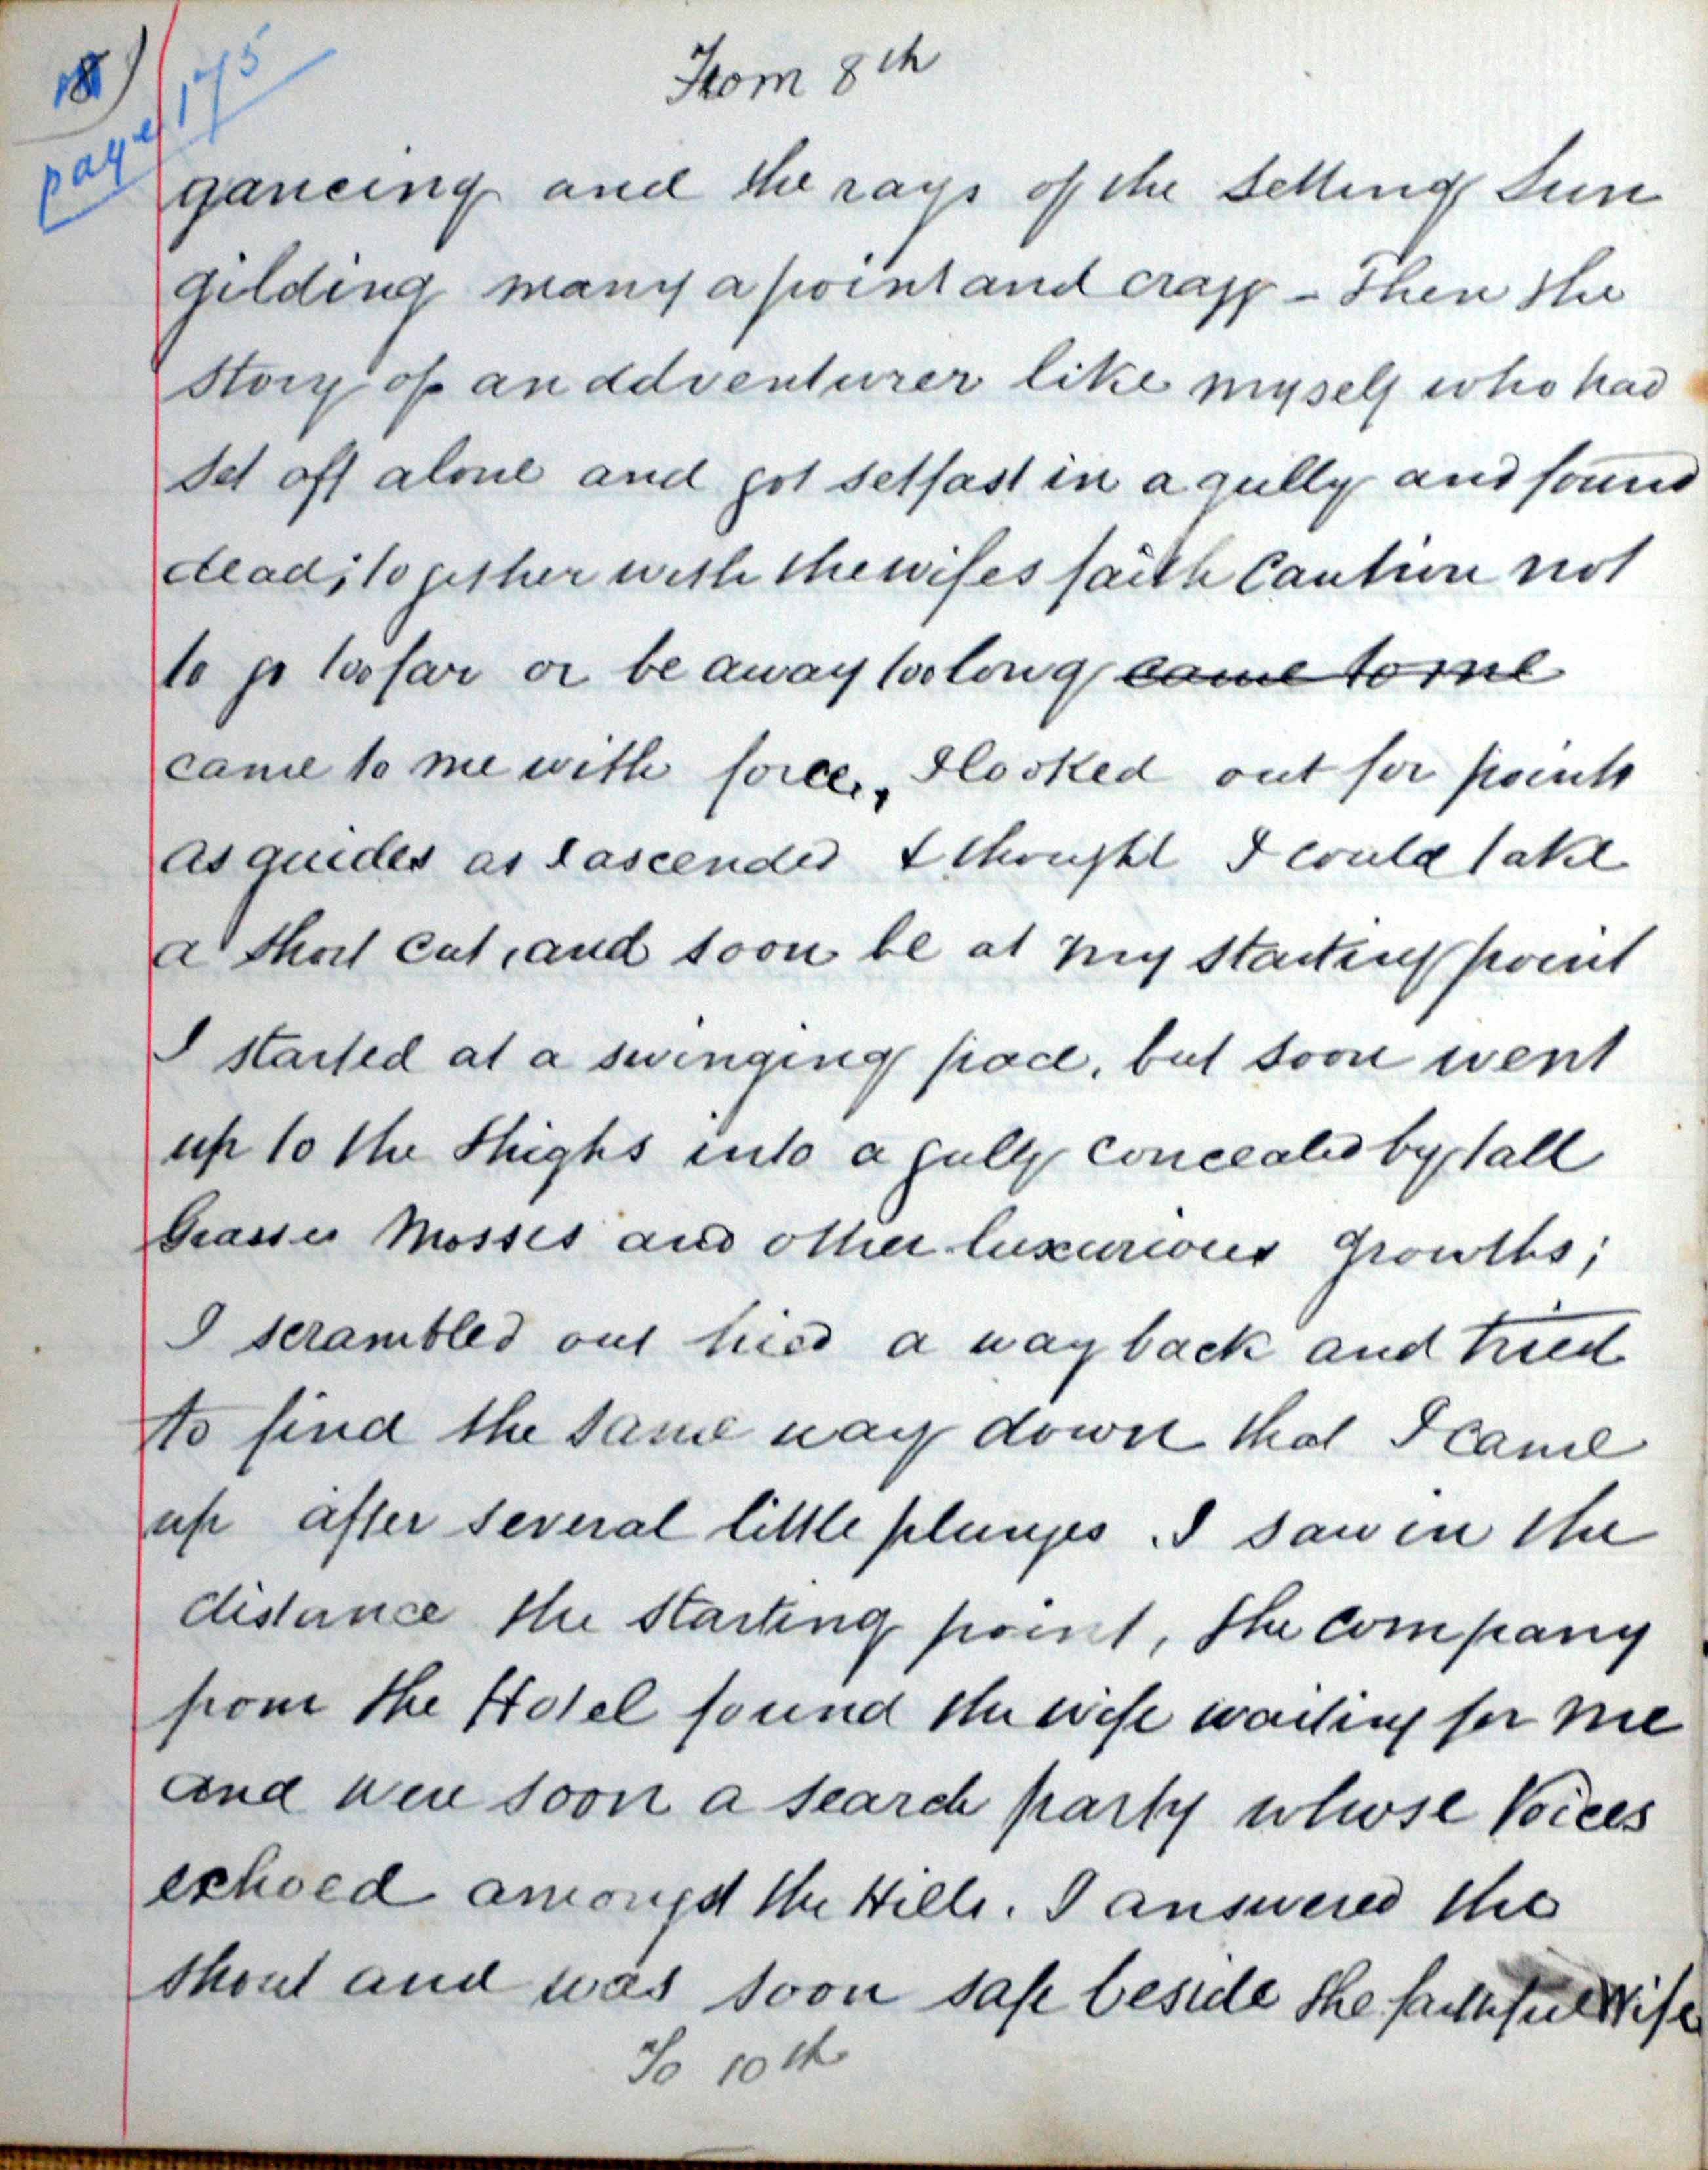 18)
page 175
From 8th
gancing and the rays of the Setting Sun
gilding many a point and cragg - Then the
story of an Adventurer like myself who had
set off alone and got setfast in a gully and found
dead; together with the wifes faith Caution not
to go too far or be away too long ~~came to me~~
came to me with force, I looked out for points
as guides as I ascended & thought I could take
a short cut, and soon be at my starting point
I started at a swinging pace, but soon went
up to the thighs into a gully concealed by tall
Grasses Mosses and other luxurious growths;
I scrambled out hied a way back and tried
to find the same way down that I came
up after several little plunges. I saw in the
distance the starting point, the company
from the Hotel found the wife waiting for me
and were soon a search party whose Voices
echoed amongst the Hills. I answered the
shout and was soon safe beside the faithful Wife
To 10th